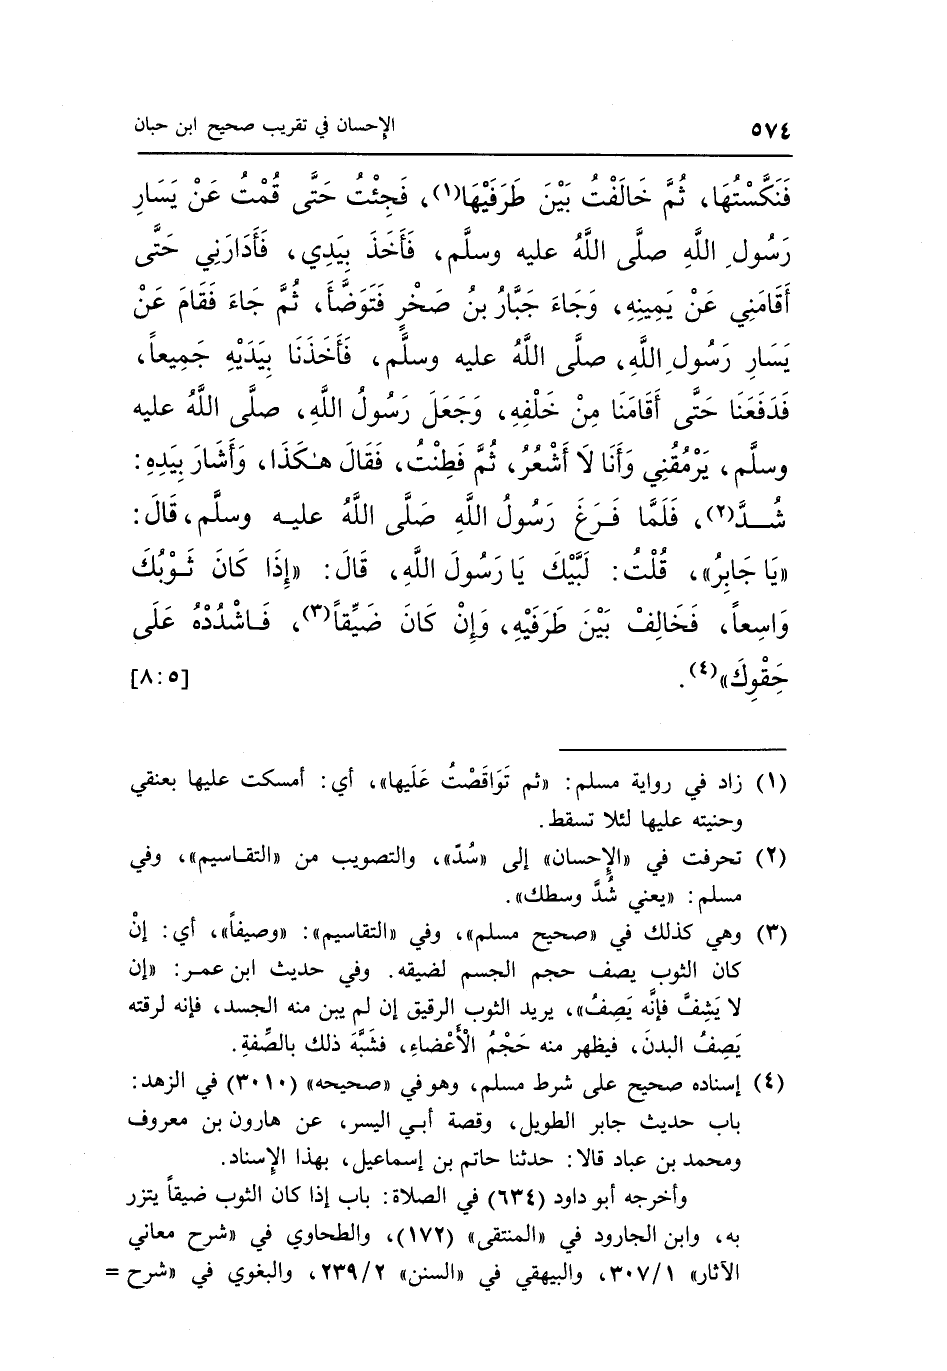 ٥٧٤
الإحسان في تقريب صحيح ابن حبان
فَنَكَّسْتُهَا، ثُمَّ خَالَفْتُ بَيْنَ طَرَفَيْهَا(١)، فَجِئْتُ حَتَّى قُمْتُ عَنْ يَسَارِ
رَسُولِ اللَّهِ صلَّى اللَّهُ عليه وسلَّم، فَأَخَذَ بِيَدِي، فَأَدَارَنِي حَتَّى
أَقَامَنِي عَنْ يَمِينِهِ، وَجَاءَ جَبَّارُ بنُ صَخْرٍ فَتَوَضَّأَ، ثُمَّ جَاءَ فَقَامَ عَنْ
يَسَارِ رَسُولِ اللَّهِ، صلَّى اللَّهُ عليه وسلَّم، فَأَخَذَنَا بِيَدَيْهِ جَمِيعاً،
فَدَفَعَنَا حَتَّى أَقَامَنَا مِنْ خَلْفِهِ، وَجَعَلَ رَسُولُ اللَّهِ، صلَّى اللَّهُ عليه
وسلَّم، يَرْمُقُنِي وَأَنَا لَا أَشْعُرُ، ثُمَّ فَطِنْتُ، فَقَالَ هٰكَذَا، وَأَشَارَ بِيَدِهِ:
شُــدَّ(٢)، فَلَمَّا فَـرَغَ رَسُولُ اللَّهِ صَلَّى اللَّهُ عليـه وسلَّم، قَالَ:
«يَا جَابِرُ»، قُلْتُ: لَبَّيْكَ يَا رَسُولَ اللَّهِ، قَالَ: «إِذَا كَانَ ثَـوْبُكَ
وَاسِعاً، فَخَالِفْ بَيْنَ طَرَفَيْهِ، وَإِنْ كَانَ ضَيِّقاً(٣)، فَـاشْدُدْهُ عَلَى
حَِقْوِكَ»(٤). [٥:٨]
(١) زاد في رواية مسلم: «ثم تَوَاقَصْتُ عَلَيها»، أي: أمسكت عليها بعنقي
وحنيته عليها لئلا تسقط.
(٢) تحرفت في «الإِحسان» إلى «سُدّ»، والتصويب من «التقـاسيم»، وفي
مسلم: «يعني شُدَّ وسطك».
(٣) وهي كذلك في «صحيح مسلم»، وفي «التقاسيم»: «وصيفاً»، أي: إنْ
كان الثوب يصف حجم الجسم لضيقه. وفي حديث ابن عمـر: «إن
لا يَشِفَّ فإنَّه يَصِفُ»، يريد الثوب الرقيق إن لم يبن منه الجسد، فإنه لرقته
يَصِفُ البدنَ، فيظهر منه حَجْمُ الأَعْضاءِ، فشَبَّهَ ذلك بالصِّفةِ.
(٤) إسناده صحيح على شرط مسلم، وهو في «صحيحه» (٣٠١٠) في الزهد:
باب حديث جابر الطويل، وقصة أبـي اليسر، عن هارون بن معروف
ومحمد بن عباد قالا: حدثنا حاتم بن إسماعيل، بهذا الإِسناد.
وأخرجه أبو داود (٦٣٤) في الصلاة: باب إذا كان الثوب ضيقاً يتزر
به، وابن الجارود في «المنتقى» (١٧٢)، والطحاوي في «شرح معاني
الآثار» ٣٠٧/١، والبيهقي في «السنن» ٢٣٩/٢، والبغوي في «شرح =